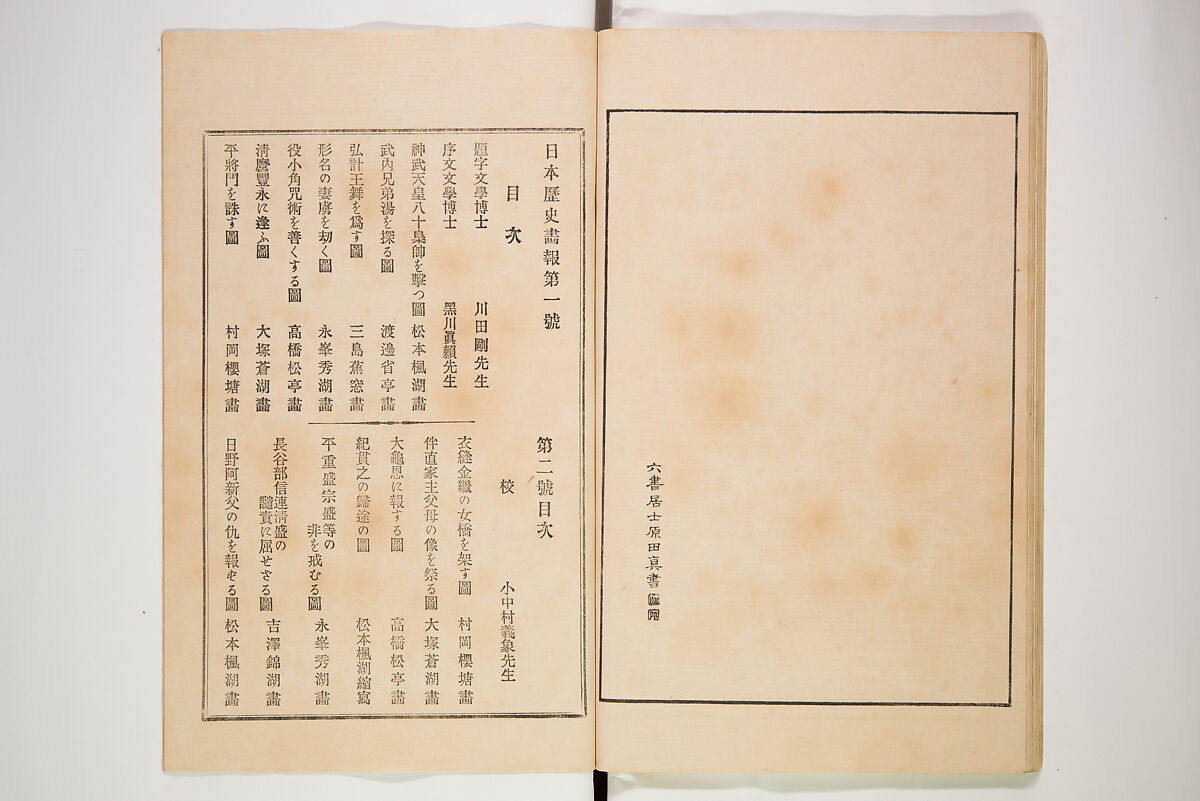 六書居士原田真書
日本歷史畵報第一號
目次
題字文學博士 川田剛先生
序文文學博士 黑川眞賴先生
神武天皇八十梟帥を擊つ圖 松本楓湖畵
武內兄弟湯を探る圖 渡邊省亭畵
弘計王舞を爲す圖 三島蕉窓畵
形名の妻虜を劫く圖 永峯秀湖畵
役小角咒術を善くする圖 高橋松亭畵
淸麿豐永に逢ふ圖 大塚蒼湖畵
平將門を誅す圖 村岡櫻塘畵
第二號目次
校 小中村義象先生
衣縫金繼の女橋を架す圖 村岡櫻塘畵
伴直家主父母の像を祭る圖 大塚蒼湖畵
大龜恩に報する圖 高橋松亭畵
紀貫之の歸途の圖 松本楓湖縮寫
平重盛宗盛等の
非を戒むる圖 永峯秀湖畵
長谷部信連淸盛の
譴責に屈せざる圖 吉澤錦湖畵
日野阿新父の仇を報ぜる圖 松本楓湖畵